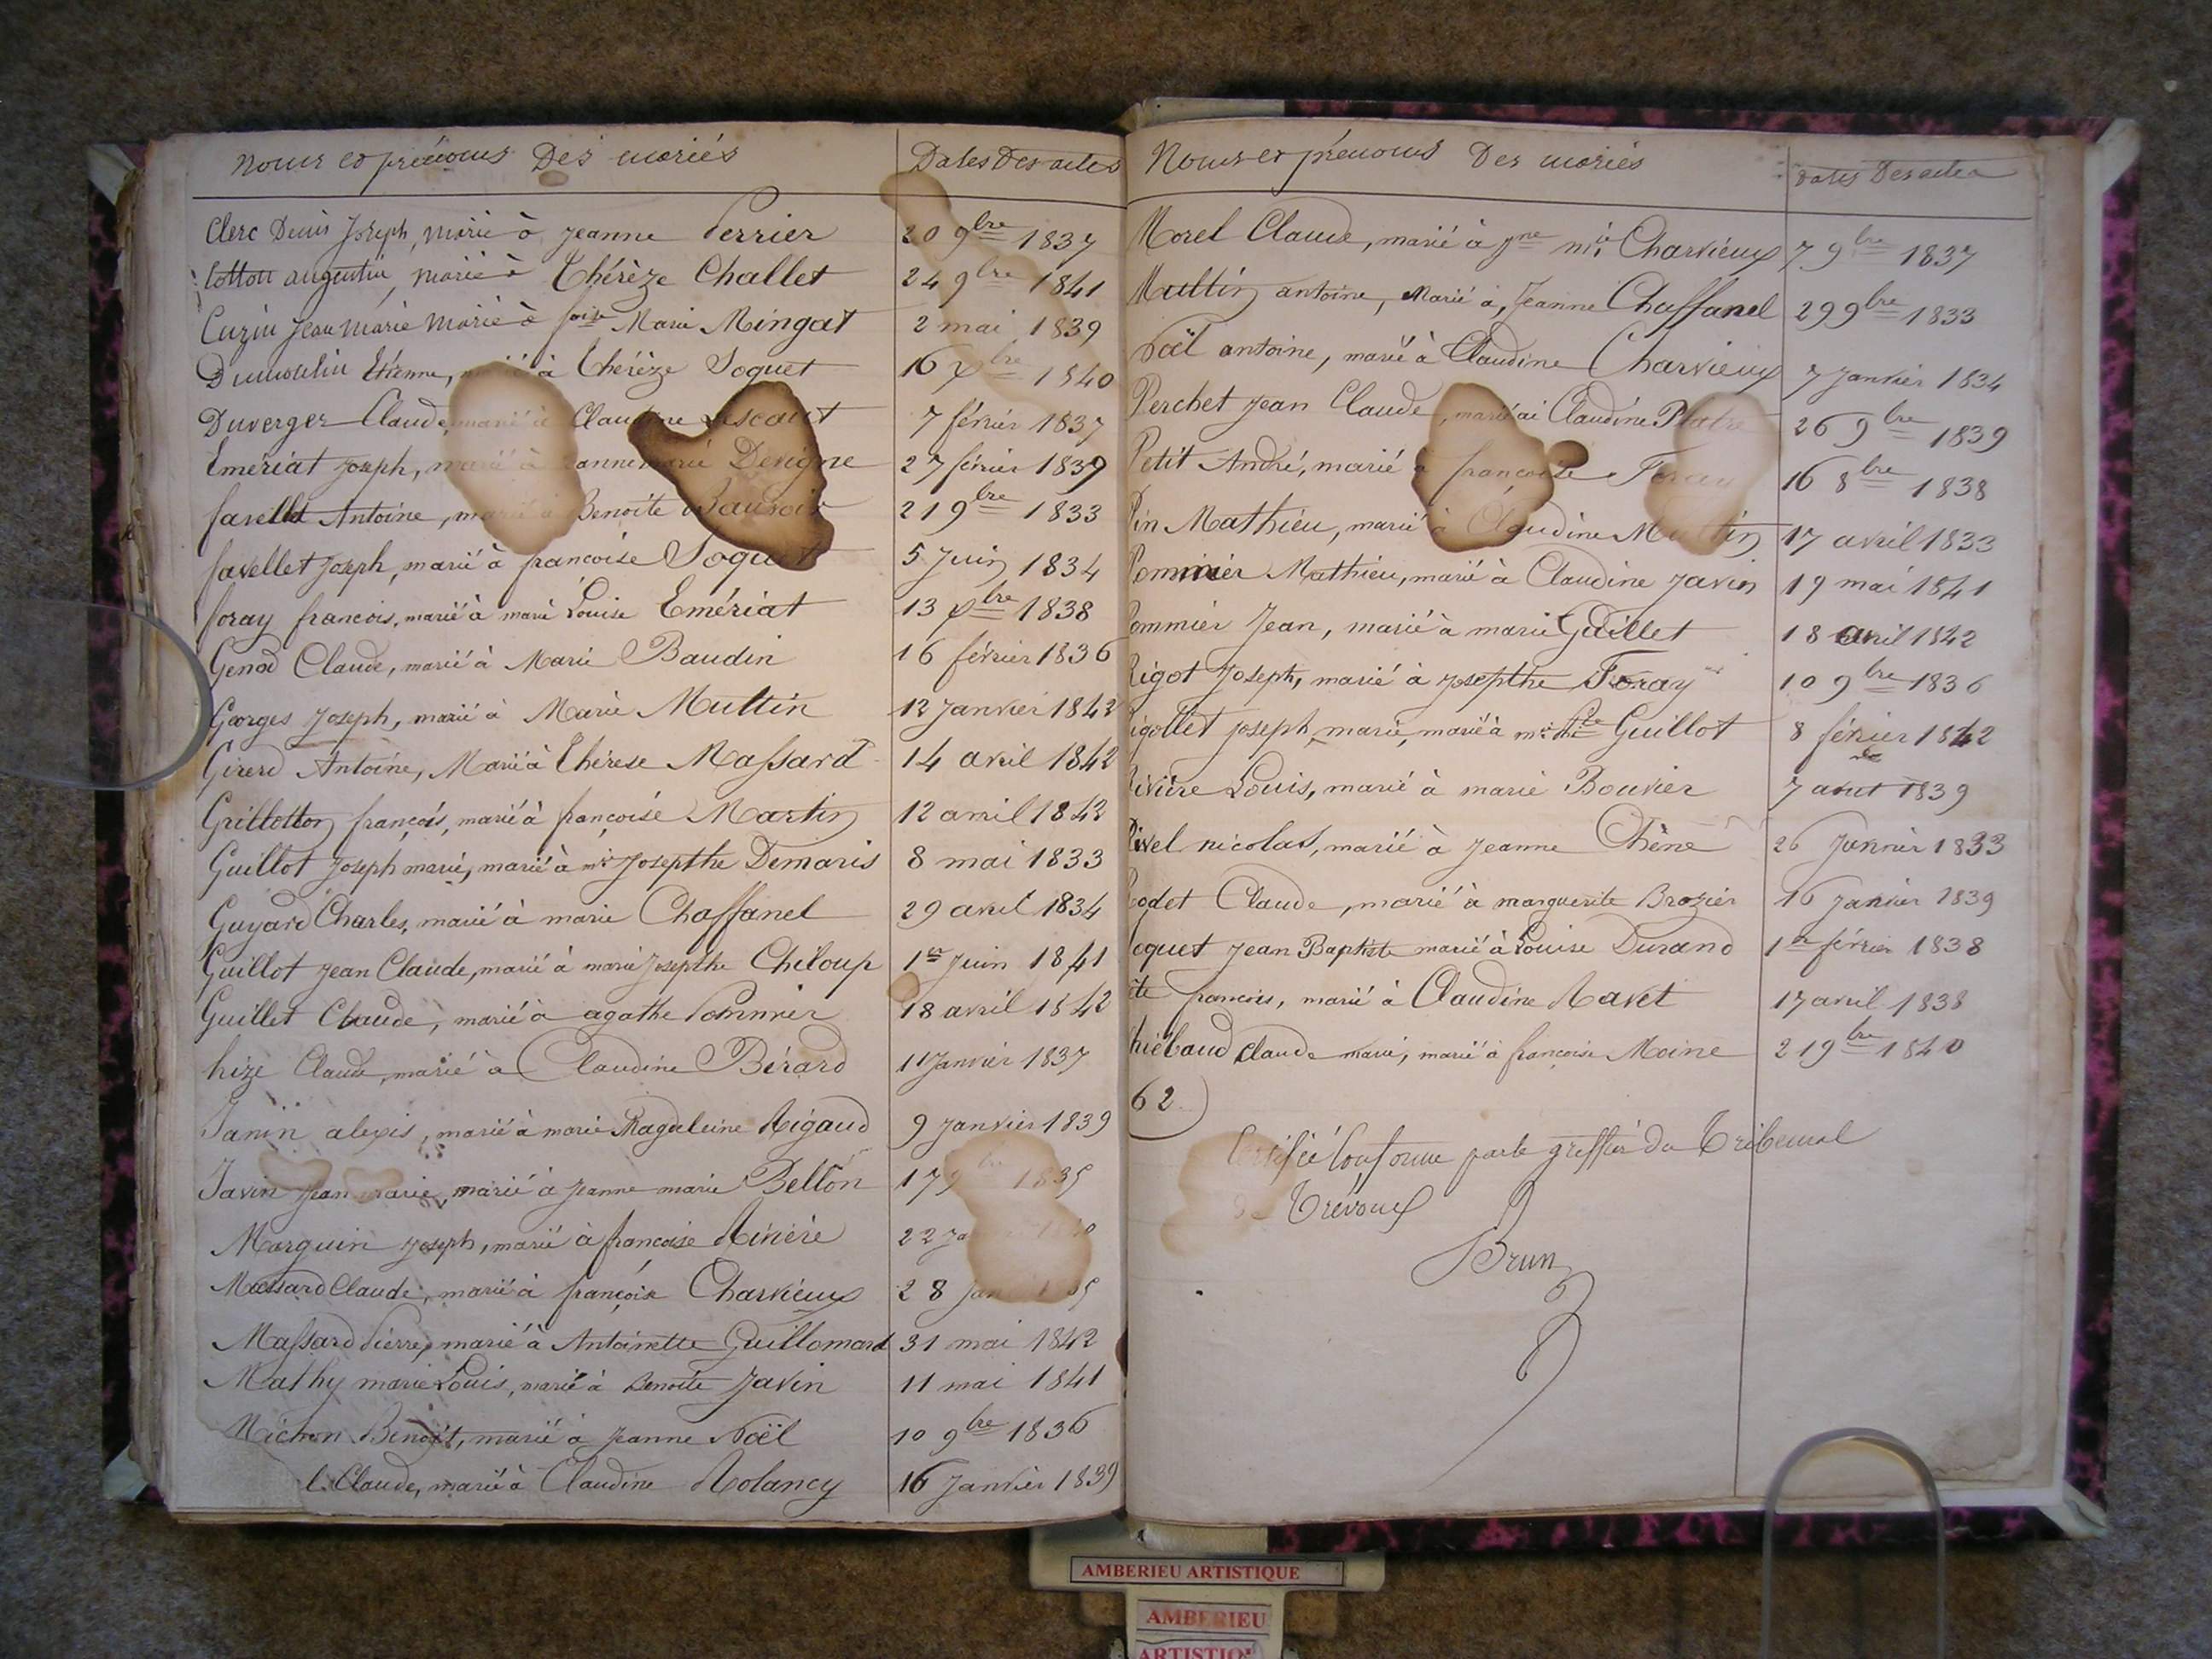 Noms et prénoms Des mariés Dates Des actes
Clerc Denis Joseph, marié à Jeanne Perrier 20 9bre 1837
Cottou augustin, marié à Thérèze Challet 24 9bre 1841
Cuzin Jean Marie Marié à Marie Mingat 2 mai 1839
Dumoulin Etienne, à Thérèze Soquet 16 xbre 1840
Duverger Claude, marié à Claudine Lescaut 7 février 1837
Emériat Joseph, marié à Jeanne marie Devigne 27 février 1839
favellet Antoine, marié à Benoite 21 9bre 1833
favellet Joseph, marié à francoise Soquet 5 Juin 1834
foray francois, marié à marie Louise Emériat 13 xbre 1838
Genod Claude, marié à Marie Baudin 16 février 1836
Georges Joseph, marié à Marie Multin 12 Janvier 1842
Girerd Antoine, Marié à Thérèse Massard 14 avril 1842
Grillotton françois, marié à françoise Martin 12 avril 1842
Guillot Joseph marie, marié à mie Josepthe Demaris 8 mai 1833
Guyard Charles, marié à marie Chaffanel 29 avril 1834
Guillot Jean Claude, marié à marie Josepthe Chiloup 1er Juin 1841
Guillet Claude, marié à agathe Pommier 18 avril 1842
hize Claude, marié à Claudine Bérard 11 Janvier 1837
Janin alexis, marié à marie Magdeleine Rigaud 9 Janvier 1839
Javin Jean marie, marié à Jeanne marie Belton 17 9bre 1835
Marguin Joseph, marié à francoise Rivière 22
Massard Claude, marié à françoise Charvieux 28
Massard Pierre, marié à Antoinette Guillomard 31 mai 1842
Mathy marie Louis, marié à Benoite Javin 11 mai 1841
Michon Benoit, marié à Jeanne Noël 10 9bre 1836
l Claude, marié à Claudine Rolancy 16 Janvier 1839
Noms et prénoms Des mariés Dates Des actes
Morel Claude, marié à jne mie Charvieux 7 9bre 1837
Multin antoine, Marié à, Jeanne Chaffanel 29 9bre 1833
Noël antoine, marié à Claudine Charvieux 7 Janvier 1834
Perchet Jean Claude, marié ai Claudine Platre 26 9bre 1839
Petit André, marié à françoise Foray 16 8bre 1838
Pin Mathieu, marié à Claudine Multin 17 avril 1833
Pommier Mathieu, marié à Claudine Javin 19 mai 1841
Pommier Jean, marié à marie Guillet 18 avril 1842
Rigot Joseph, marié à Josepthe Foray 10 9bre 1836
Rigollet Joseph marie, marié à mie Guillot 8 février 1842
Rivière Louis, marié à marie Bouvier 7 aout 1839
Rivel nicolas, marié à Jeanne Chêne 26 Janvier 1833
Rodet Claude, marié à marguerite Brozier 16 Janvier 1839
Soquet Jean Baptiste marié à Louise Durand 1er février 1838
francois, marié à Claudine Ravet 17 avril 1838
Thiébaud Claude marie, marié à françoise Moine 21 9bre 1840
62
Certifié Conforme par le greffier du Tribunal
de Trévoux
Brun
AMBERIEU ARTISTIQUE
AMBERIEU
ARTISTIQ